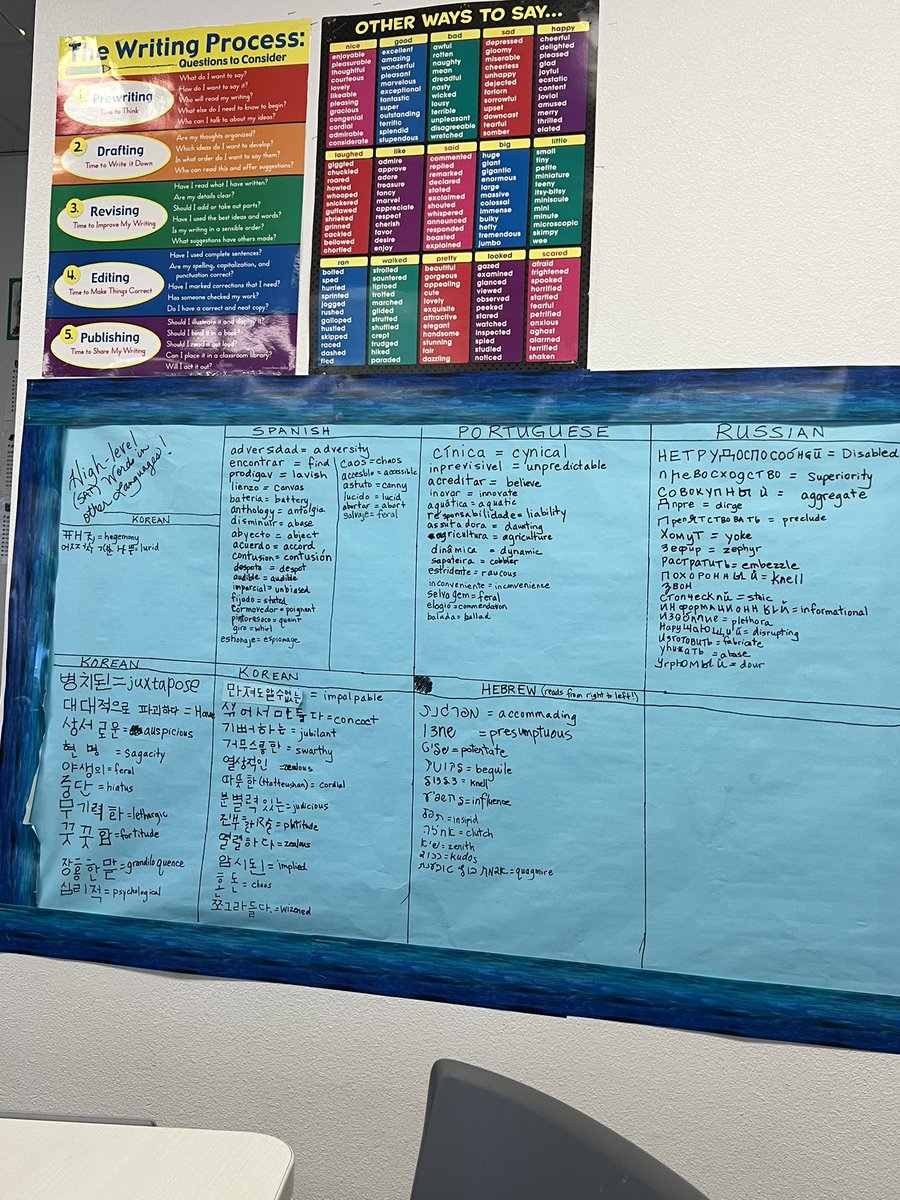 The Writing Process:
Questions to Consider
1. Prewriting
Time to Think
What do I want to say?
How do I want to say it?
Who will read my writing?
What else do I need to know to begin?
Who can I talk to about my ideas?
2. Drafting
Time to Write it Down
Are my thoughts organized?
Which ideas do I want to develop?
In what order do I want to say them?
Who can read this and offer suggestions?
3. Revising
Time to Improve My Writing
Have I read what I have written?
Are my details clear?
Should I add or take out parts?
Have I used the best ideas and words?
Is my writing in a sensible order?
What suggestions have others made?
4. Editing
Time to Make Things Correct
Have I used complete sentences?
Are my spelling, capitalization, and
punctuation correct?
Have I marked corrections that I need?
Has someone checked my work?
Do I have a correct and neat copy?
5. Publishing
Time to Share My Writing
Should I illustrate it and display it?
Should I bind it in a book?
Should I read it out loud?
Can I place it in a classroom library?
Will I act it out?
OTHER WAYS TO SAY...
nice
enjoyable
pleasurable
thoughtful
courteous
lovely
likeable
pleasing
gracious
congenial
cordial
admirable
considerate
good
excellent
amazing
wonderful
pleasant
marvelous
exceptional
fantastic
super
outstanding
terrific
splendid
stupendous
bad
awful
rotten
naughty
mean
dreadful
nasty
wicked
lousy
terrible
unpleasant
disagreeable
wretched
sad
depressed
gloomy
miserable
cheerless
unhappy
dejected
forlorn
sorrowful
upset
downcast
tearful
somber
happy
cheerful
delighted
pleased
glad
joyful
ecstatic
content
jovial
amused
merry
thrilled
elated
laughed
giggled
chuckled
roared
howled
whooped
snickered
guffawed
shrieked
grinned
cackled
bellowed
chortled
like
admire
approve
adore
treasure
fancy
marvel
appreciate
respect
cherish
favor
desire
enjoy
said
commented
replied
remarked
declared
stated
exclaimed
shouted
whispered
announced
responded
boasted
explained
big
huge
giant
gigantic
enormous
large
massive
colossal
immense
bulky
hefty
tremendous
jumbo
little
small
tiny
petite
miniature
teeny
itsy-bitsy
miniscule
mini
minute
microscopic
skimpy
wee
ran
bolted
sped
hurried
sprinted
jogged
rushed
galloped
hustled
skipped
raced
dashed
fled
walked
strolled
sauntered
tiptoed
trotted
marched
glided
strutted
shuffled
crept
trudged
hiked
paraded
pretty
beautiful
gorgeous
appealing
cute
lovely
exquisite
attractive
elegant
handsome
stunning
fair
dazzling
looked
gazed
examined
glanced
viewed
observed
peeked
stared
watched
inspected
spied
studied
noticed
scared
afraid
frightened
spooked
horrified
startled
fearful
petrified
anxious
aghast
alarmed
terrified
shaken
High-level
(SAT) Words in
other Languages!
KOREAN
= hegemony
= lurid
SPANISH
adversdad = adversity
encontrar = find
prodigav = lavish
lienzo = canvas
bateria = battery
anthology = antolgia
disminuir = abase
abyecto = abject
acuerdo = accord
contusion = contusión
despota = despot
audible = audible
imparcial = unbiased
fijado = stated
cormovedor = poignant
pintoresoco = quaint
giro = whirl
estionaje = espionage
caos = chaos
accesble = accessible
astuto = canny
lucido = lucid
abortar = abort
salvaje = feral
PORTUGUESE
cínica = cynical
inprevisivel = unpredictable
acreditar = believe
inovar = innovate
aquática = aquatic
responsabilidade = liability
assutadora = daunting
agricultura = agriculture
dinâmica = dynamic
sapateira = cobbler
estridente = raucous
inconveniente = inconvenience
selvagem = feral
elogio = commendation
balada = ballad
RUSSIAN
НЕТРУДОСПОСОБНЫЙ = Disabled
превосходство = Superiority
СОВОКУПНЫЙ = aggregate
= dirge
Препятствовать = preclude
Хомут = yoke
Зефир = zephyr
растратить = embezzle
ПОХОРОННЫЙ = Knell
ЗВОН
Стоический = stoic
ИНФОРМАЦИОННЫЙ = informational
Изобилие = plethora
Нарушающий = disrupting
Изготовить = fabricate
унижать = abase
Угрюмый = dour
KOREAN
병치된 = juxtapose
대대적으로 파괴하다 =
상서로운 = auspicious
현명 = sagacity
야생의 = feral
중단 = hiatus
무기력화 = lethargic
꿋꿋함 = fortitude
장황한 말 = grandiloquence
심리적 = psychological
KOREAN
만져도 알 수 없는 = impalpable
섞어서 만들다 = concoct
기뻐하는 = jubilant
거무스름한 = swarthy
열상적인 = zealous
따뜻한 (Hatteushan) = cordial
분별력 있는 = judicious
= platitude
열렬하다 = zealous
암시된 = implied
혼돈 = chaos
쪼그라들다. = wizened
HEBREW (reads from right to left!)
= accommading
= presumptuous
= potentate
= beguile
= knell
= influence
= insipid
= clutch
= zenith
= kudos
= quagmire